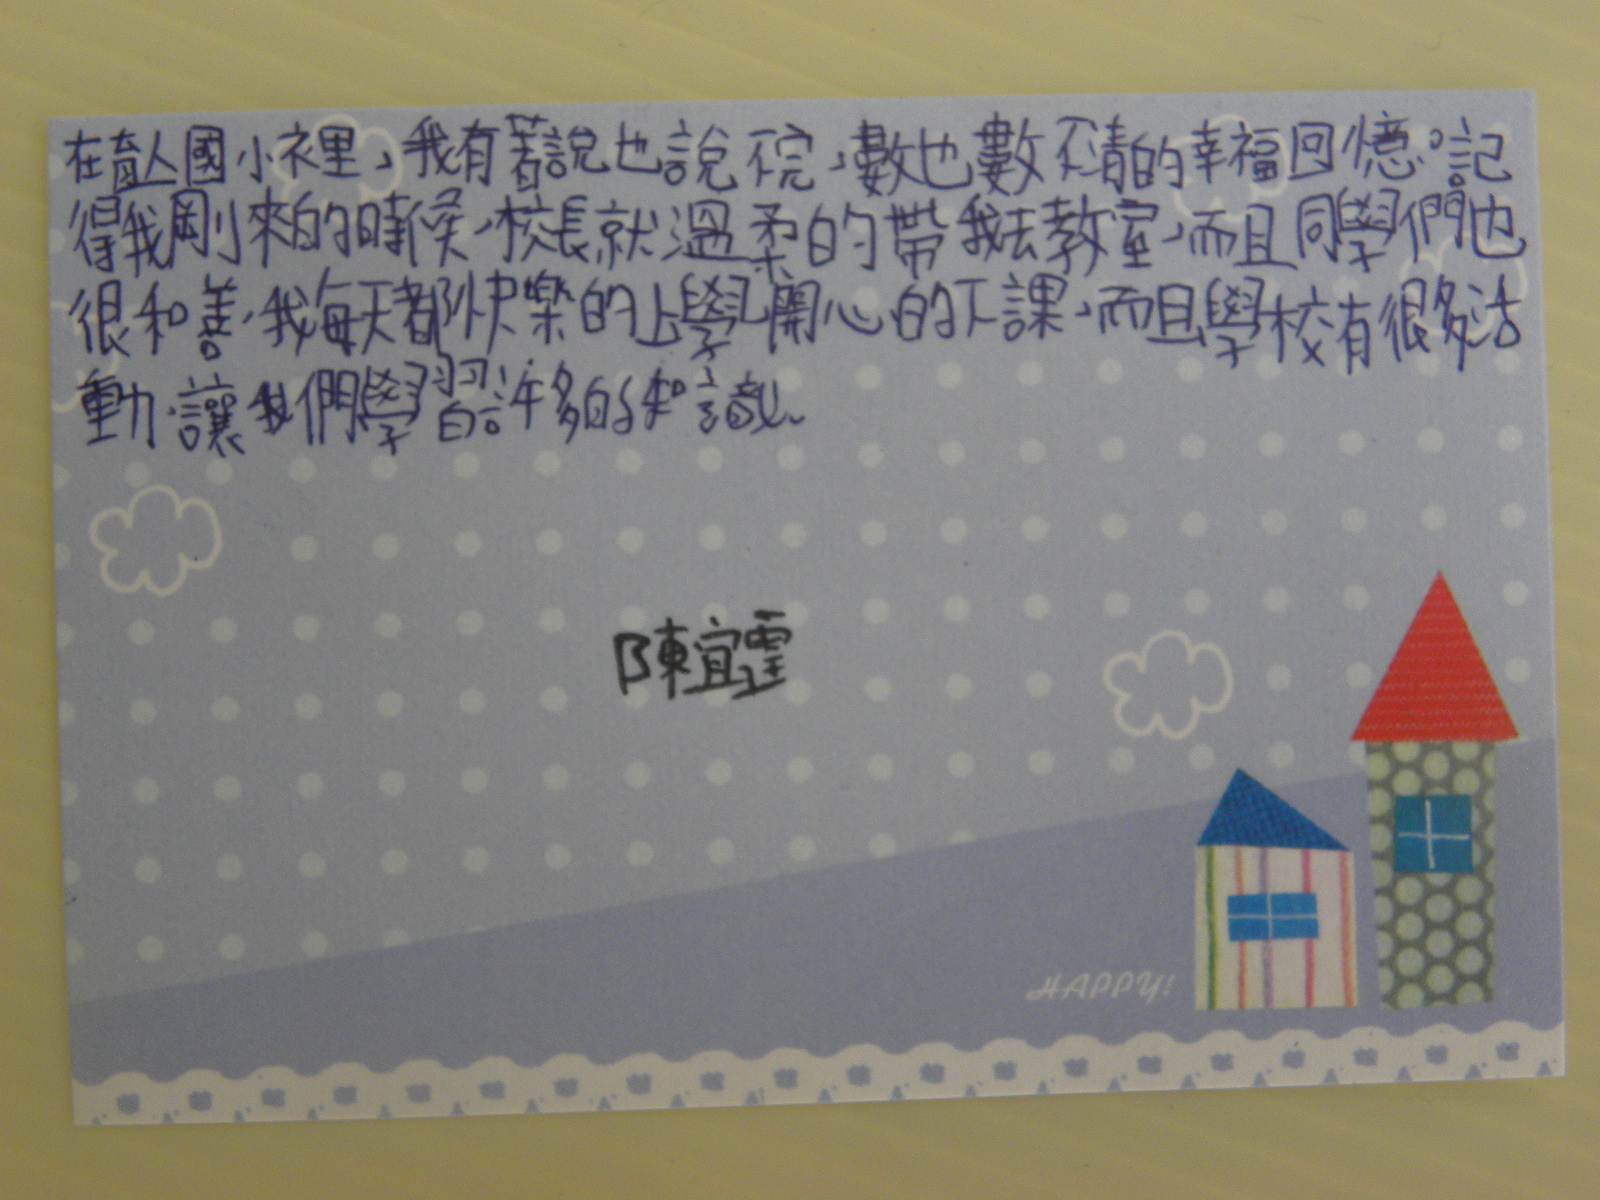 在育人國小裡，我有著說也說不完，數也數不清的幸福回憶。記
得我剛來的時候，校長就溫柔的帶我去教室，而且同學們也
很和善，我每天都快樂的上學，開心的下課，而且學校有很多活
動，讓我們學習許多的知識。
陳宜霆
HAPPY!